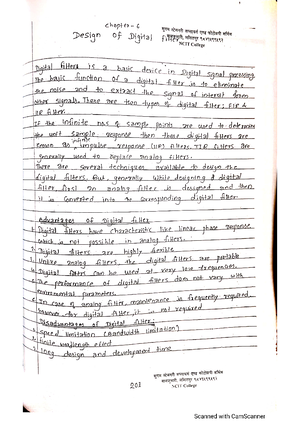 Chapter-6
Design of Digital filter
NCIT College
Digital filters is a basic device in Digital signal processing
The basic function of a digital filter is to eliminate
the noise and to extract the signal of interest from
other signals. There are two types of digital filters: FIR &
IIR filter.
If the infinite no.s of sample points are used to determine
the unit sample response then those digital filters are
known as infinite impulse response (IIR) filters. IIR filters are
generally used to replace analog filters.
There are several techniques available to design the
digital filters. But, generally while designing a digital
filter, first an analog filter is designed and then
it is converted into corresponding digital filter.
Advantages of Digital filter
1. Digital filters have characteristic like linear phase response
which is not possible in analog filters.
2. Digital filters are highly flexible
3. Unlike analog filters, the digital filters are portable
4. Digital filters can be used at very low frequencies.
5. The performance of digital filters does not vary with
environmental parameters.
6. In case of analog filter, maintenance is frequently required
however for digital filter, it is not required
Disadvantages of Digital filter
1. Speed limitation (Bandwidth limitation)
2. finite wordlength effect
3. Long design and development time
NCIT College
201
Scanned with CamScanner